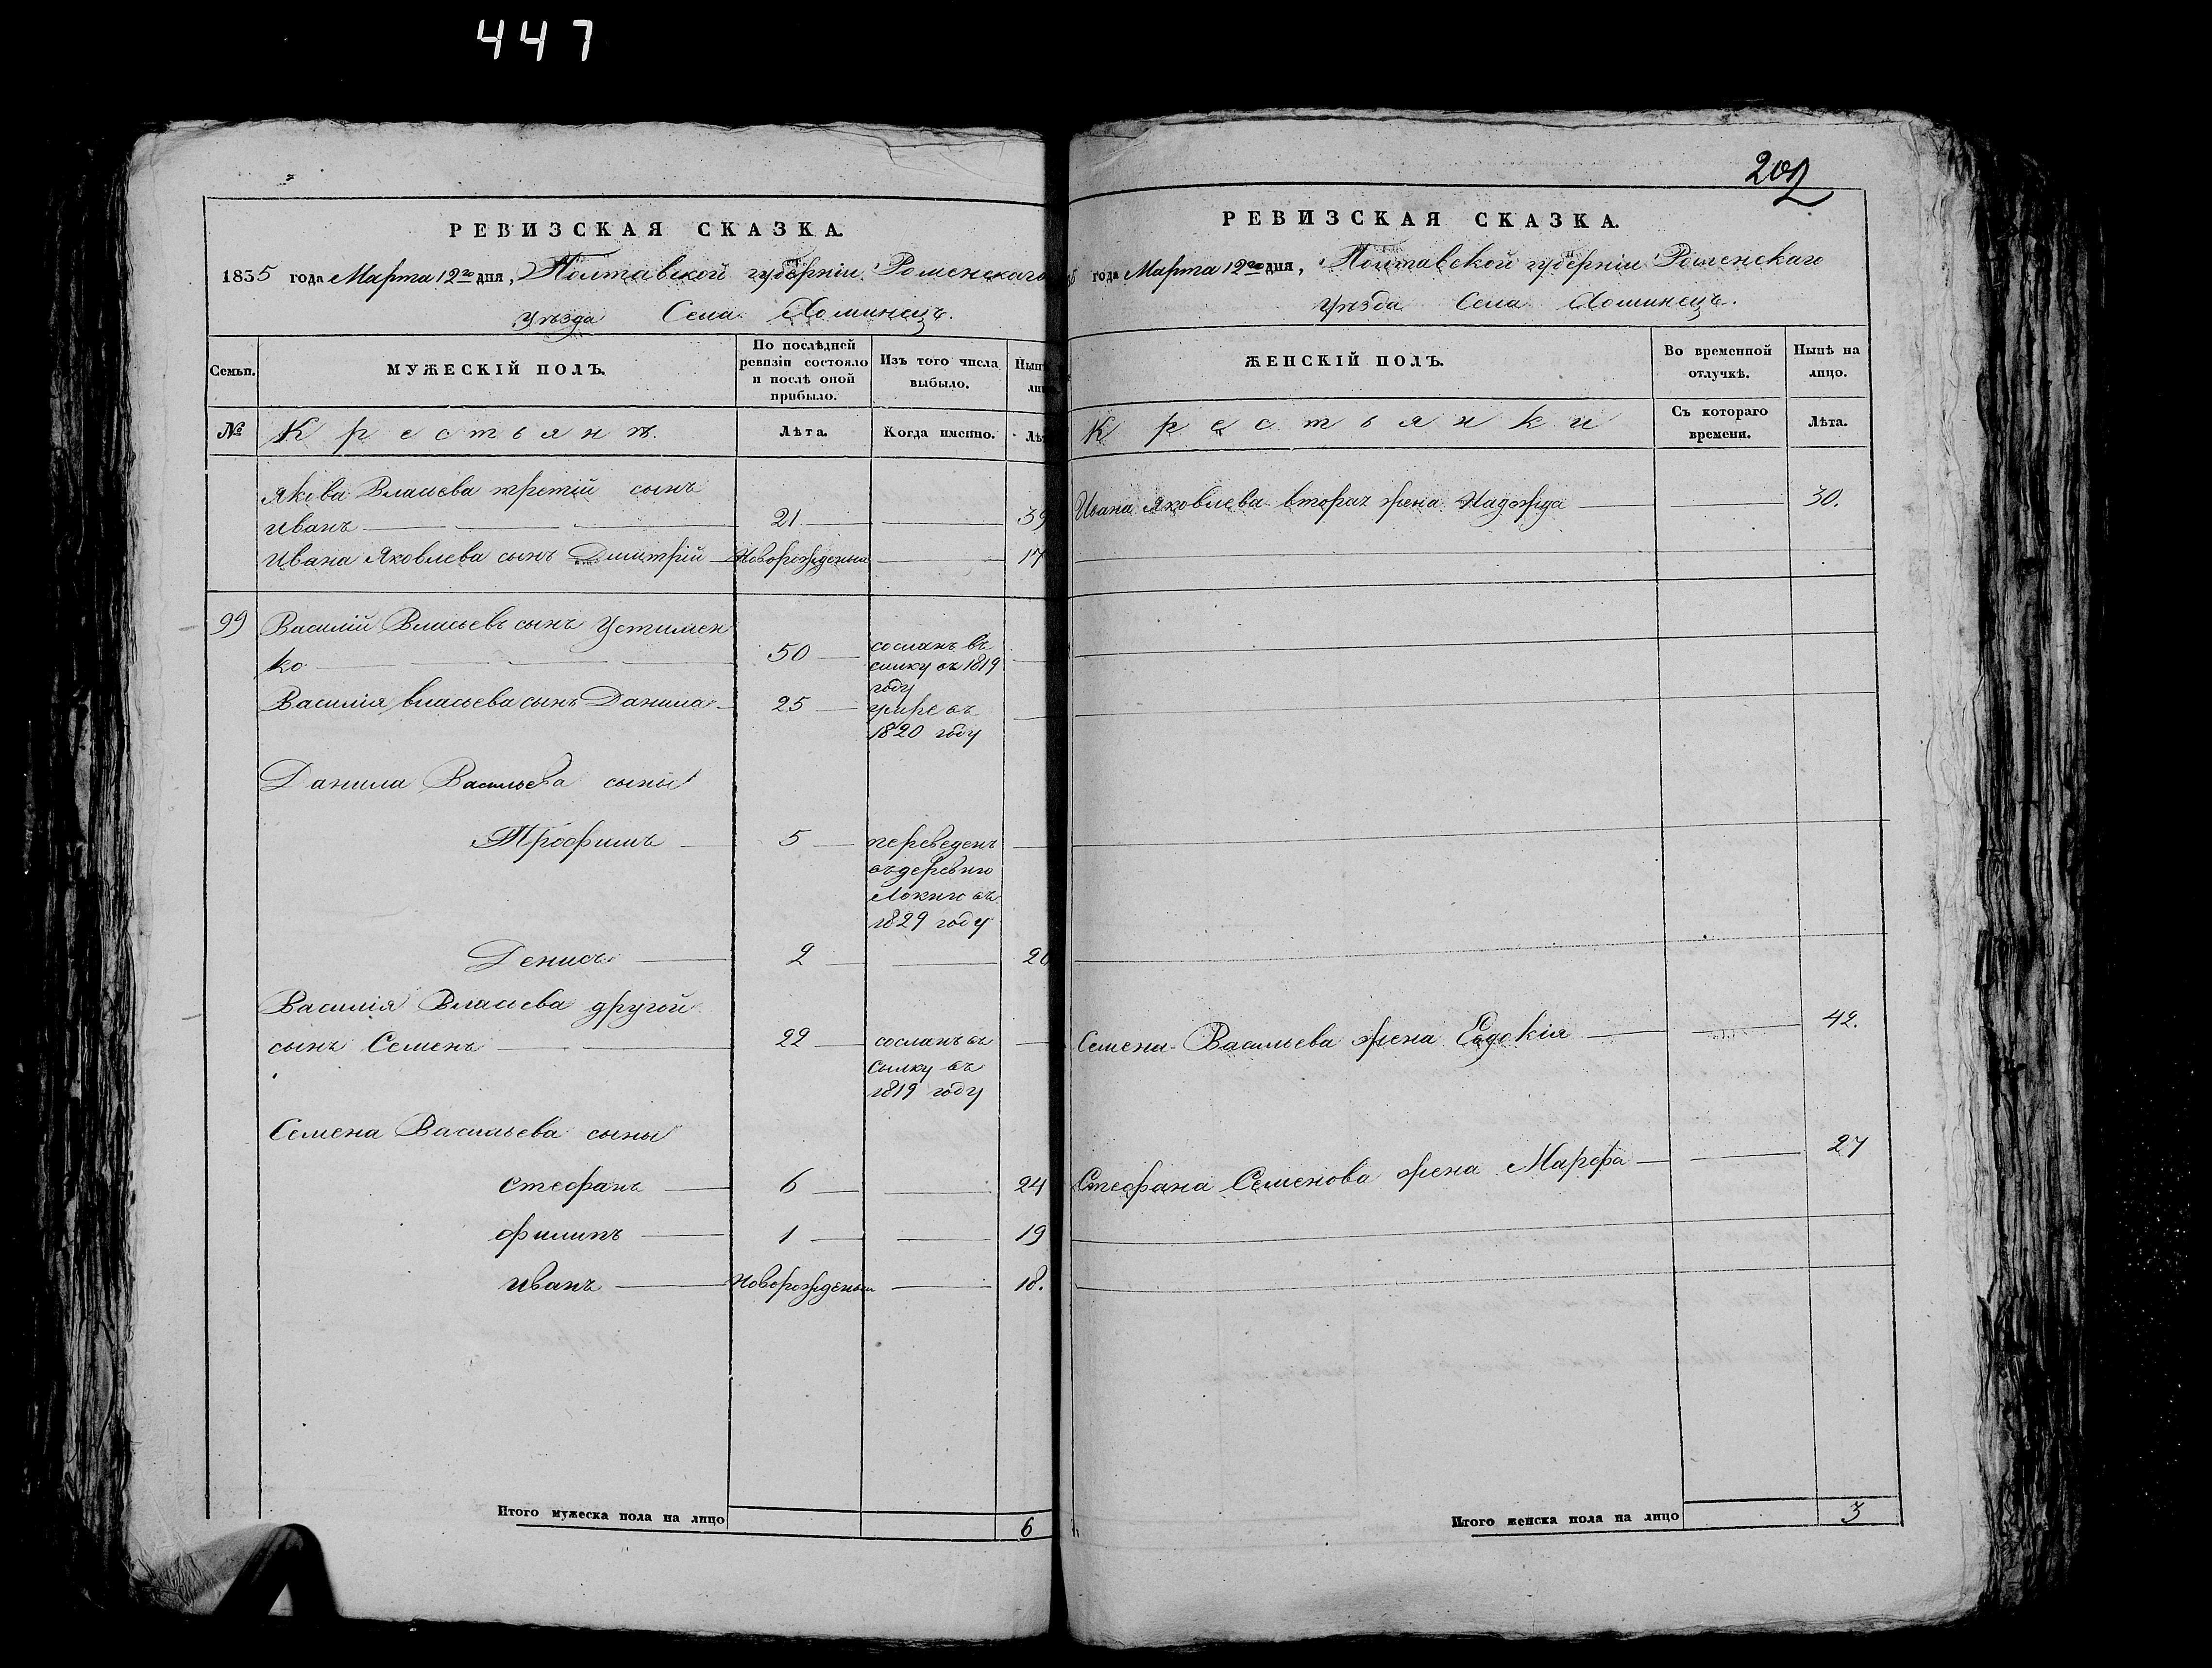 447
РЕВИЗСКАЯ СКАЗКА.
1835 года Марта 12го дня, Полтавской губерніи Роменскаго
уѣзда Села Хоминецъ.
Семьи.
МУЖЕСКІЙ ПОЛЪ.
По послѣдней
ревизіи состояло
и послѣ оной
прибыло.
Изъ того числа
выбыло.
№
Крестьянъ.
Лѣта.
Когда именно.
Якова Власьева третій сынъ
Иванъ 21 39
Ивана Яковлева сынъ Дмитрій Новорожденый 17
99 Василій Власьевъ сынъ Устимен
ко 50 сосланъ въ
силку въ 1819
году
Василія власьева сынъ Данила 25 умре въ
1820 году
Данила Васильева сыны
Трофимъ 5 переведенъ
въ деревню
Локню въ
1829 году
Денисъ 2 20
Василія Власьева другой
сынъ Семенъ 22 сосланъ въ
Сылку въ
1819 году
Семена Васильева сыны
Стефанъ 6 24
Филипъ 1 19
Иванъ Новорожденый 18.
Итого мужеска пола на лицо 6
202
РЕВИЗСКАЯ СКАЗКА.
года Марта 12го дня, Полтавской губерніи Роменскаго
уѣзда Села Хоминецъ.
ЖЕНСКІЙ ПОЛЪ.
Во временной
отлучкѣ.
Нынѣ на
лицо.
Крестьянки
Съ котораго
времени.
Лѣта.
Ивана Яковлева вторая жена Надежда 30.
Семена Васильева жена Евдокія 42.
Стефана Семенова жена Марфа 27
Итого женска пола на лицо 3